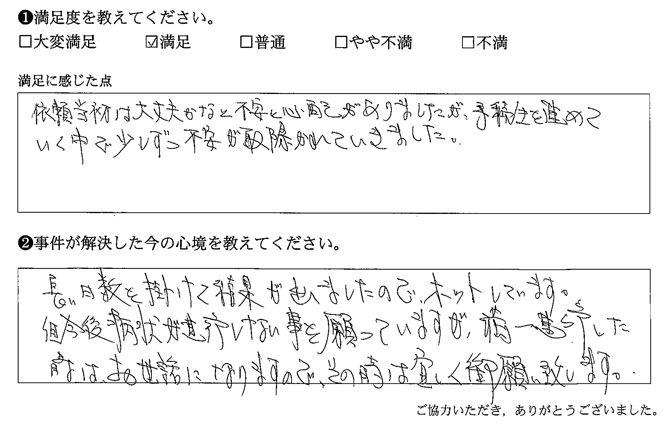 ❶満足度を教えてください。
□大変満足 ☑満足 □普通 □やや不満 □不満
満足に感じた点
依頼当初は大丈夫かなと不安と心配がありましたが、手続きを進めて
いく中で少しずつ不安が取除かれていきました。
❷事件が解決した今の心境を教えてください。
長い日数を掛けて結果が出ましたので、ホットしています。
但今後病状が進行しない事を願っていますが、万一進行した
時は、お世話になりますので、その時は宜しく御願い致します。
ご協力いただき，ありがとうございました。